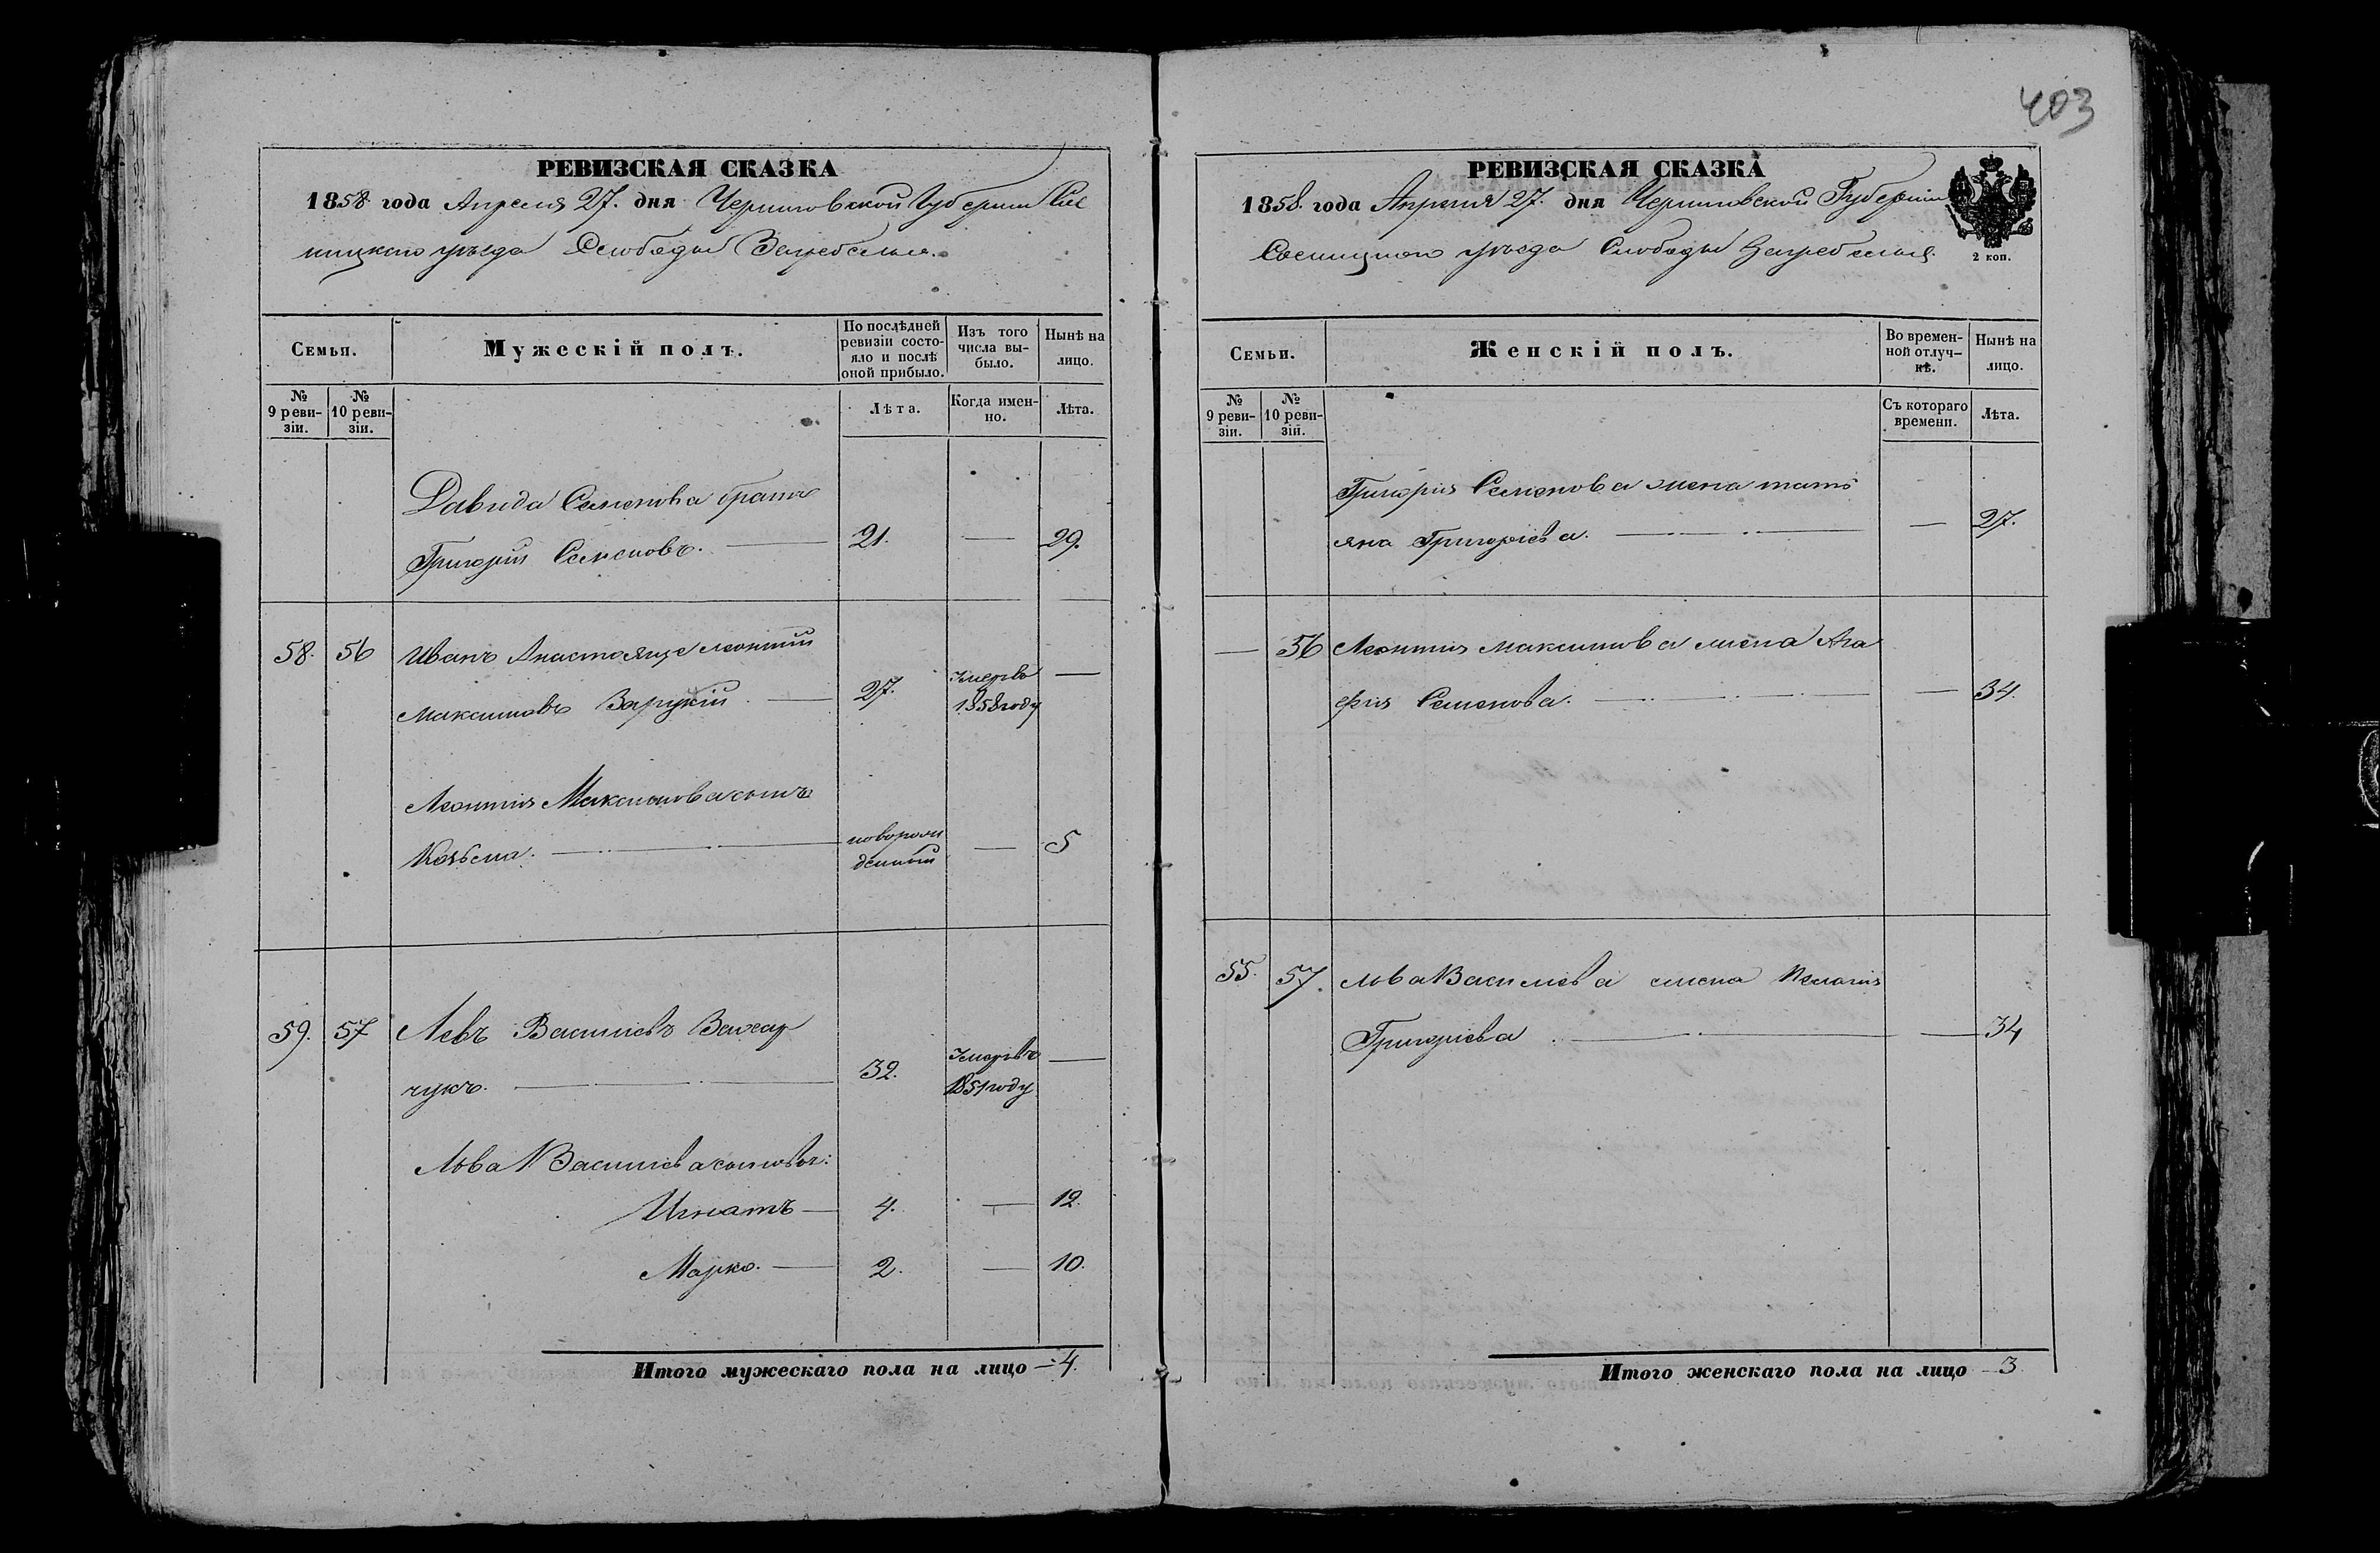 403
РЕВИЗСКАЯ СКАЗКА
1858 года Апреля 27. дня Черниговской Губернии Сос
ницкаго уѣзда Слободы Загребелья.
Семьи.
Мужескій полъ.
По послѣдней ревизіи состояло и послѣ оной прибыло.
Изъ того числа выбыло.
Нынѣ на лицо.
№ 9 ревизіи.
№ 10 ревизіи.
Лѣта.
Когда именно.
Лѣта.
Давида Семенова братъ
Григорій Семеновъ. 21. — 29.
58. 56 Иванъ Анастоящее Леонтій
Максимовъ Заруцкій 27. Умеръ въ 1858 году —
Леонтія Максимова сынъ
Козьма. новорожденный — 5
59. 57 Левъ Васильевъ
чукъ. 32. Умеръ въ 1851 году —
Льва Васильева сыновья:
Игнатъ — 4. — 12.
Марко. — 2. — 10.
Итого мужескаго пола на лицо — 4.
РЕВИЗСКАЯ СКАЗКА
1858. года Апреля 27. дня Черниговской Губерніи
Сосницкаго уѣзда Слободы Загребелья.
2 коп.
Семьи.
Женскій полъ.
Во временной отлучкѣ.
Нынѣ на лицо.
№ 9 ревизіи.
№ 10 ревизіи.
Съ котораго времени.
Лѣта.
Григорія Семенова жена Тать
яна Григоріева. — 27.
— 56 Леонтія Максимова жена Ага
фія Семенова. — 34.
55. 57. Льва Васильева жена Пелагія
Григоріева — 34
Итого женскаго пола на лицо 3